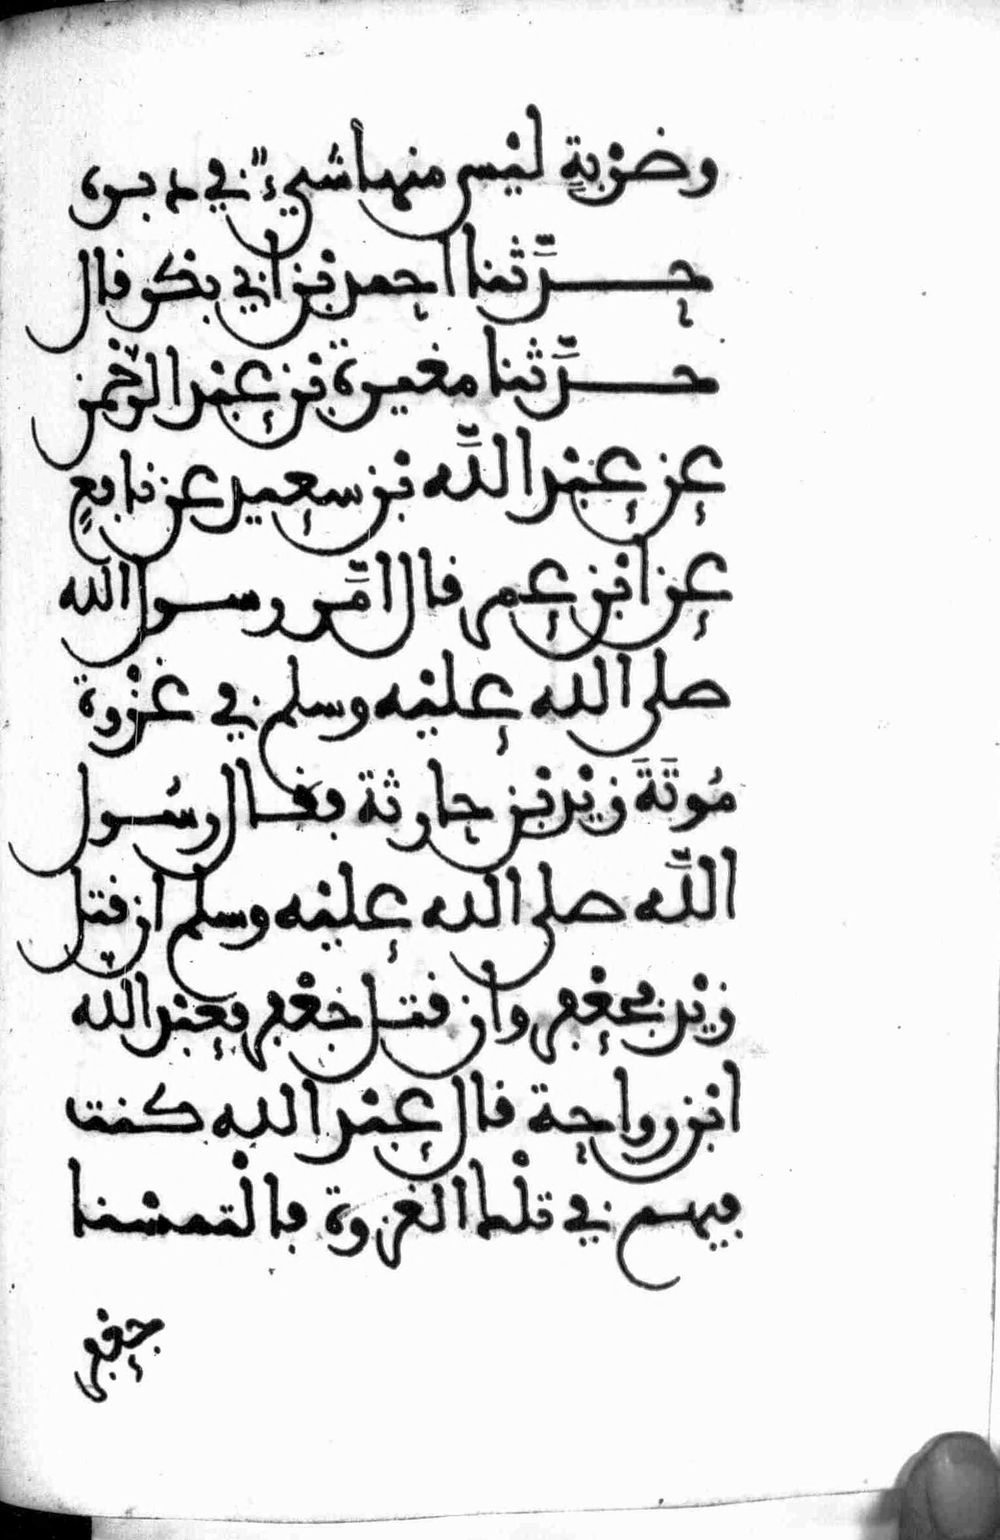 وضربة ليس منها شيء في دبره
حدثنا احمد بن ابي بكر قال
حدثنا مغيرة بن عبد الرحمن
عن عبد الله بن سعيد عن نافع
عن ابن عمر قال امر رسول الله
صلى الله عليه وسلم في غزوة
موتة زيد بن حارثة فقال رسول
الله صلى الله عليه وسلم ان قتل
زيد فجعفر وان قتل جعفر فعبد الله
ابن رواحة قال عبد الله كنت
فيهم في تلك الغزوة فالتمسنا
جعفر